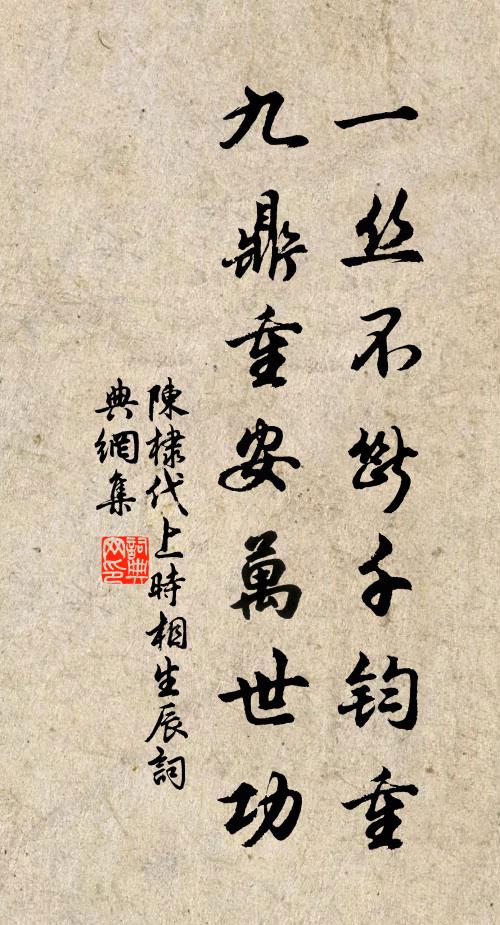 一丝不断千钧重
九鼎重安萬世功
陳棣代上時相生辰詞
典網集
詞典
网印